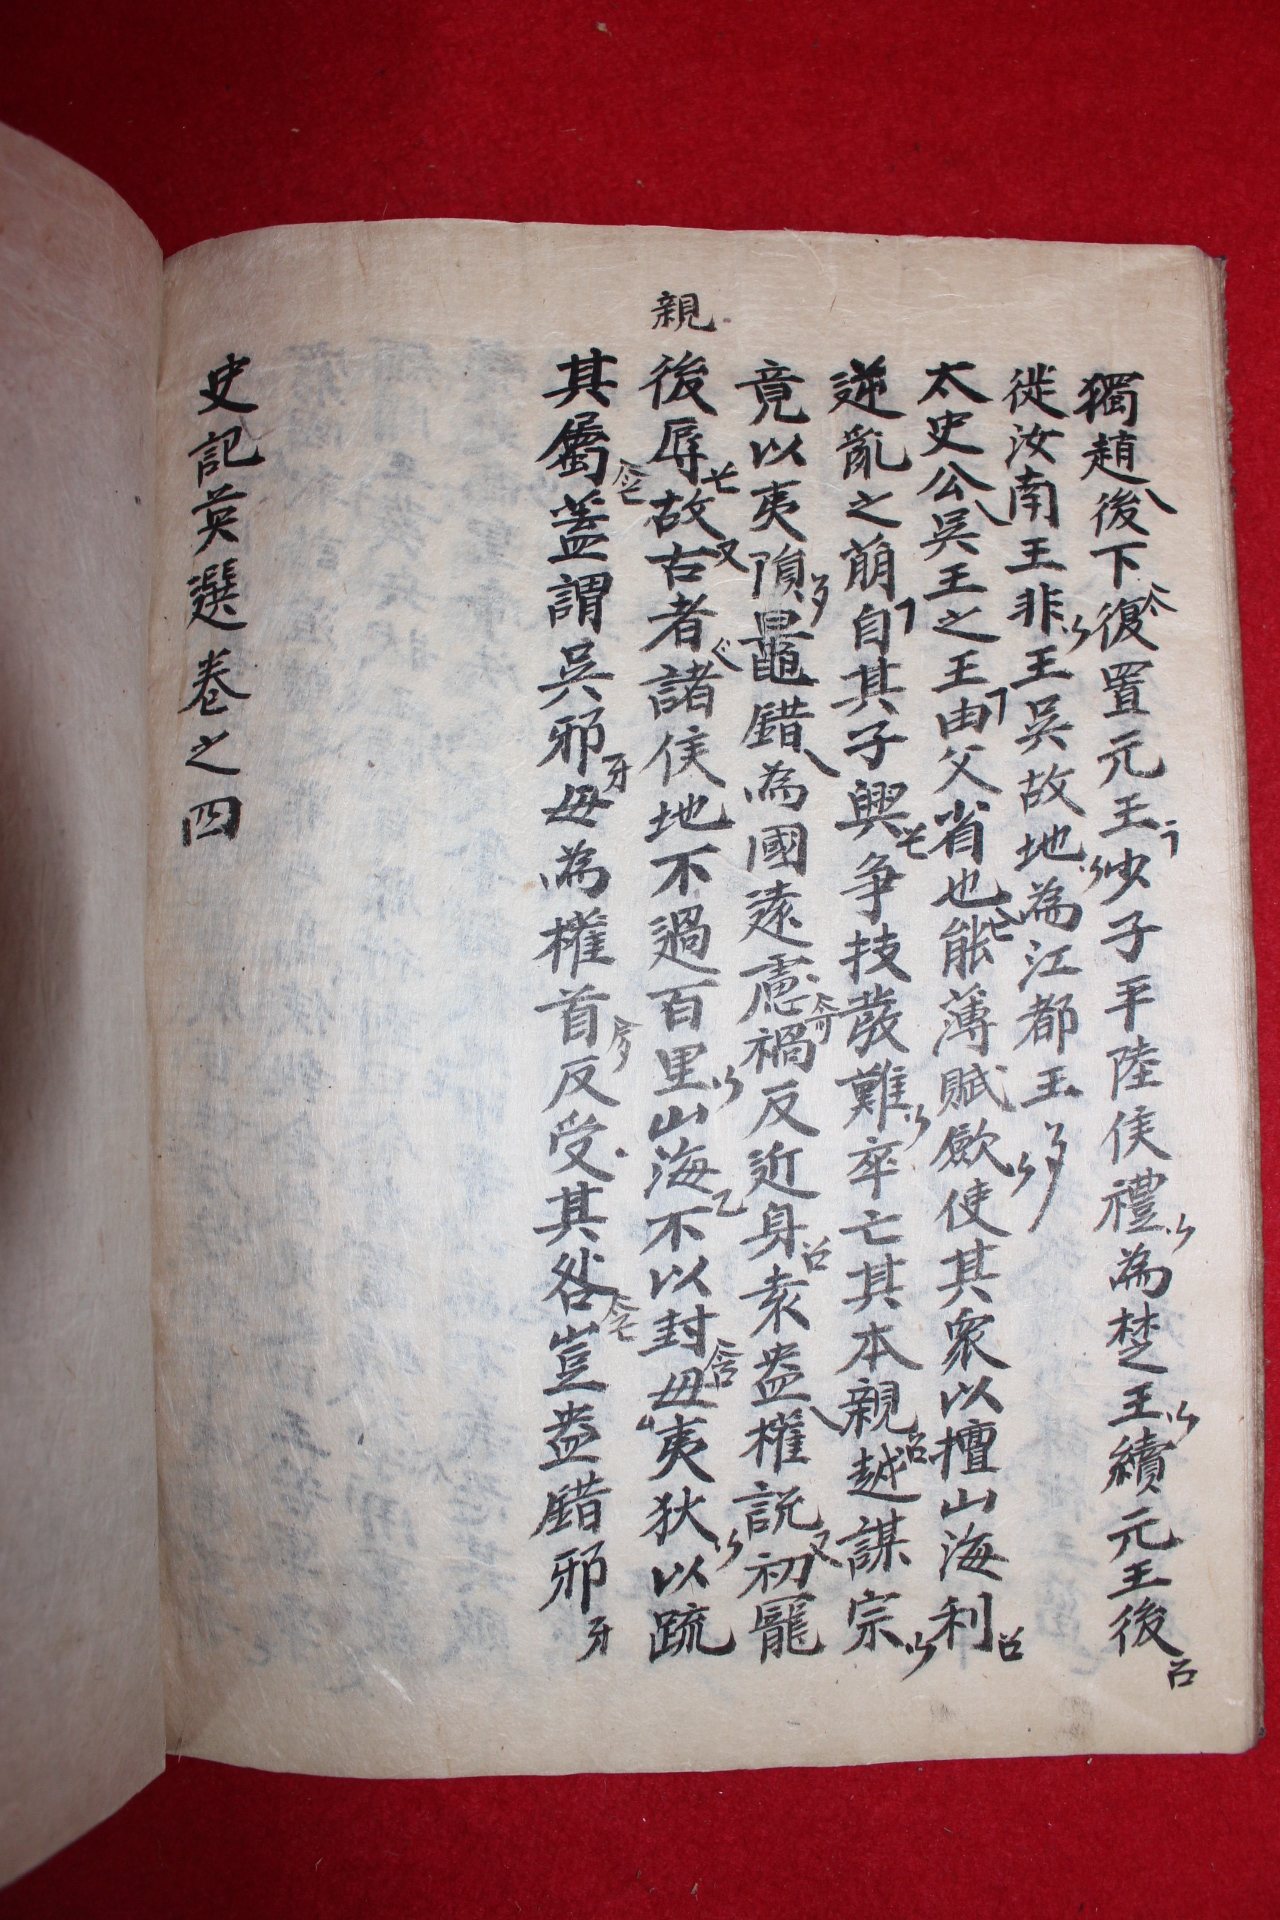 獨趙後下復置元王少子平陸侯禮為楚王續元王後
徙汝南王非王吳故地為江都王
太史公吳王之王由父省也能薄賦斂使其衆以擅山海利
逆亂之萠自其子興争技發難卒亡其本親越謀宗
竟以夷隕鼂錯為國遠慮禍反近身袁盎權說初寵
親
後辱故古者諸侯地不過百里山海不以封毋夷狄以疏
其屬蓋謂吳邪毋為權首反受其咎豈盎錯邪
史記英選卷之四